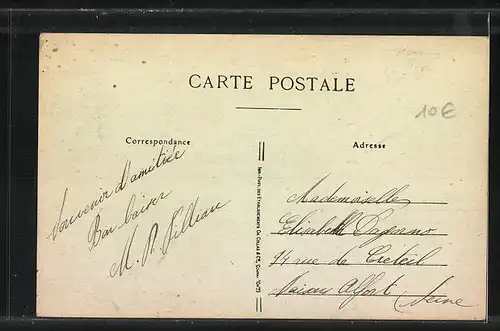 CARTE POSTALE
10€
Correspondance
Adresse
Souvenir d'amitiée
Bon baiser
M. R. Fillian
IMP.-PHOT. DES ÉTABLISSEMENTS CH. COLLAS & Cie, COGNAC
Mademoiselle
Elisabeth Dagorno
94 rue de Creteil
Maison Alfort
Seine